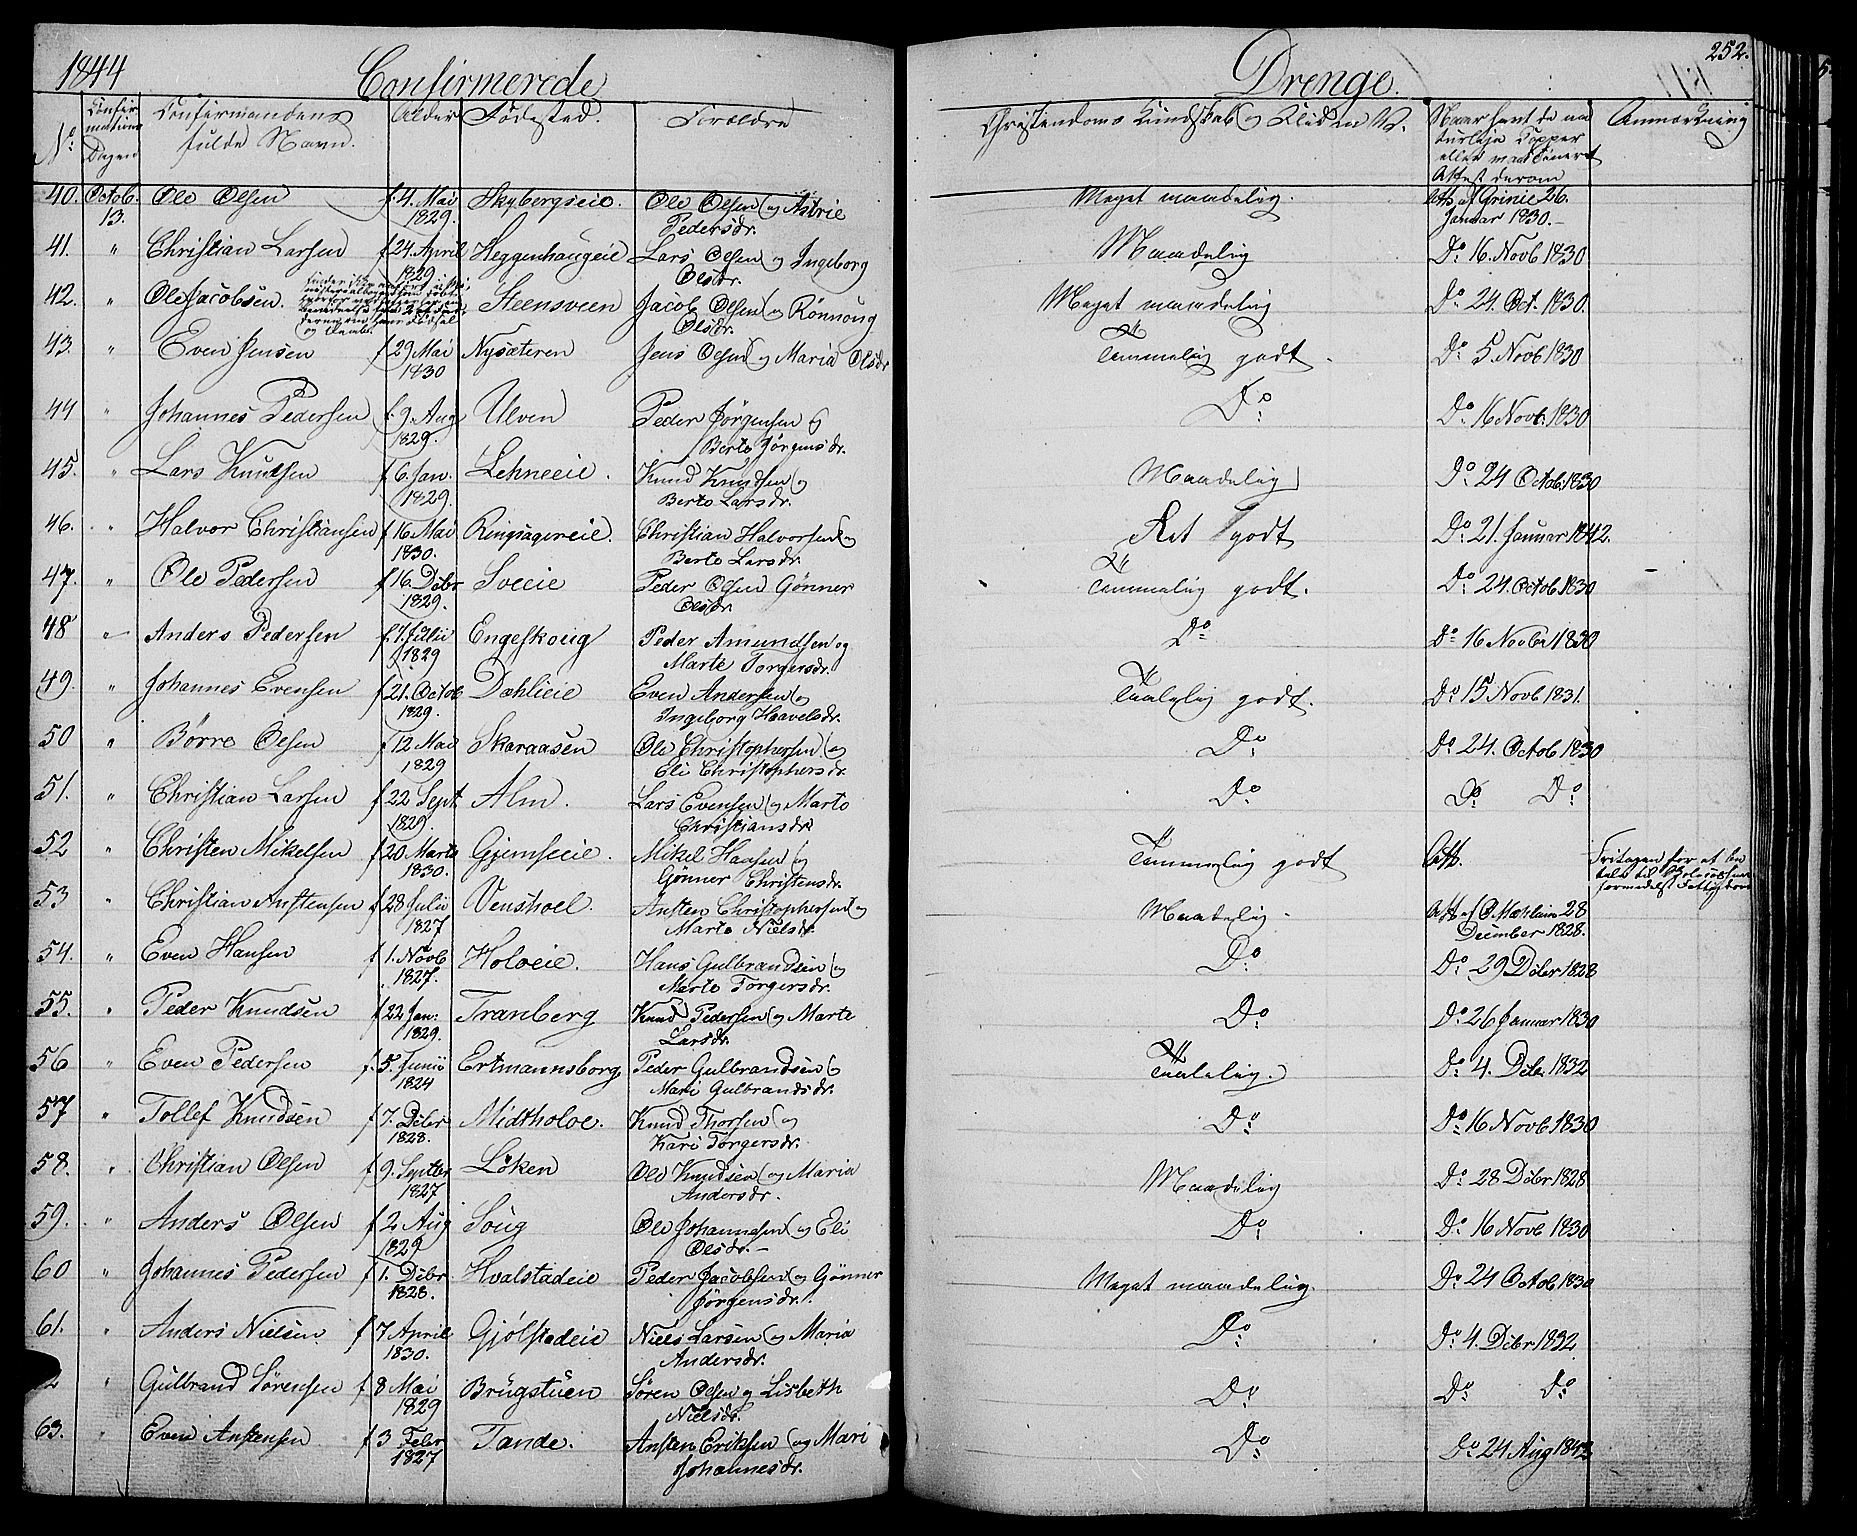 1844 Confirmerede Drenge. 252.
No. Confirmations Dagen Confirmandens fulde Navn. Alder Födested. Forældre Christendoms Kundskab og Naar havt de naturlige Kopper eller vaccineret Attest derom Anmærkning
40. Octob. 13. Ole Olsen f. 4. Mai 1829. Skybergseie. Ole Olsen og Astrie Pedersdr. Meget maadelig. Att. af Grinie 26. Januar 1830.-
41. " Christian Larsen f 24. April 1829 Heggenhaugeie Lars Olsen og Ingeborg Olsdr. Maadelig Do 16. Novb 1830
42. " Ole Jacobsen. Steensveen Jacob Olsen og Rönnoug Olsdr. Meget maadelig Do 24 Oct. 1830.
43. " Even Jensen f 29 Mai 1830 Nysæteren Jens Olsen og Maria Olsdr Temmelig godt. Do 5 Novb 1830
44 " Johannes Pedersen f. 9. Aug 1829. Ulven Peder Jörgensen og Berte Jörgensdr. Do Do 16 Novb. 1830
45. " Lars Knudsen f 6. Jan. 1829. Lehneeie. Knud Knudsen og Berte Larsdr. Maadelig Do 24 Octob. 1830
46. " Halvor Christiansen f 16 Mai 1830. Ringsagereie. Christian Halvorsen og Berte Larsdr. Ret godt Do 21. Januar 1842.
47. " Ole Pedersen f 16. Debr 1829. Sveeie Peder Olsen Gönner Olsdr. Temmelig godt. Do 24. Octob 1830
48 " Anders Pedersen f. 1. Julii 1829 Engeskoug Peder Amundsen og Marte Torgersdr. Do Do 16 Novbr 1830
49. " Johannes Evensen f 21. Octob 1829. Dahlieie Even Andersen og Ingeborg Haavelsdr. Taalelig godt. Do 15 Novb 1831.
50 " Börre Olsen f 12 Mai 1829 Skaraasen Ole Christophersen og Eli Christophersdr. Do Do 24. Octob 1830
51. " Christian Larsen f 22 Sept. 1829. Alm. Lars Evensen og Marte Christiansdr. Do Do Do
52 " Christen Mikelsen f 20 Marts 1830. Gjemseeie. Mikel Hansen og Gönner Christensdr. Temmelig godt Att. Fritagen for at betale til Skolecassen formedelst Fattigdom
53 " Christian Anstensen f 28 Julii 1827 Venskoel. Ansten Christophersen og Marte Nielsdr Maadelig. Att. af O. Mæhlum 28 December 1828.
54. " Even Hansen f 1. Novb 1827. Holoeie. Hans Gulbrandsen og Marte Torgersdr. Do Do 29 Debr 1828
55. " Peder Knudsen f 22 Jan. 1829. Tranberg Knud Pedersen og Marte Larsdr. Do Do 26 Januar 1830
56 " Even Pedersen f. 5. Junii 1824 Ertmannsborg Peder Gulbrandsen og Mari Gulbrandsdr. Taalelig. Do 4. Debr 1832
57 " Tollef Knudsen f 7. Debr 1828. Midtholoe. Knud Thorsen og Kari Torgersdr. Do Do 16 Novb 1830
58. " Christian Olsen f 9. Septbr 1827 Löken Ole Knudsen og Maria Andersdr. Maadelig Do 28 Debr 1828
59. " Anders Olsen f 2 Aug 1829 Soug Ole Johannesen og Eli Olsdr.- Do Do 16 Novb 1830
60 " Johannes Pedersen f 1. Debr. 1828. Hvalstadeie Peder Jacobsen og Gönner Jörgensdr. Meget maadelig. Do 24 Octob 1830
61. " Anders Nielsen f 7 April 1830. Gjölstadeie Niels Larsen og Maria Andersdr. Do Do 4. Debr 1832
2 " Gulbrand Sörensen f 8 Mai 1829 Brugstuen Sören Olsen og Lisbeth Nielsdr. Do Do Do
63. " Even Anstensen f 3 Febr 1827 Tande. Ansten Eriksen og Mari Johannesdr. Do Do 24 Aug 1843